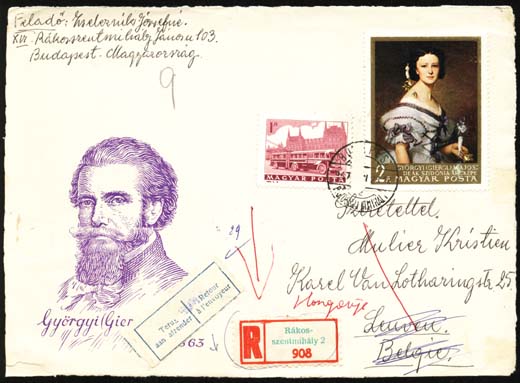 Feladó:
XVI. Rákosszentmihály János u 103.
Budapest. Magyarország.
9
1 Ft
MAGYAR POSTA
GYÖRGYI (GIERGL) ALAJOS:
DEÁK SZIDÓNIA ARCKÉPE
2 Ft
MAGYAR POSTA
Mulier Kristien
Karel Van Lotharingstr 25.
Hongarije
Leuven.
Belgie.
29
Terug
aan afzender
Retour
à l'envoyeur
Györgyi (Gier
863
R
Rákos-
szentmihály 2
908